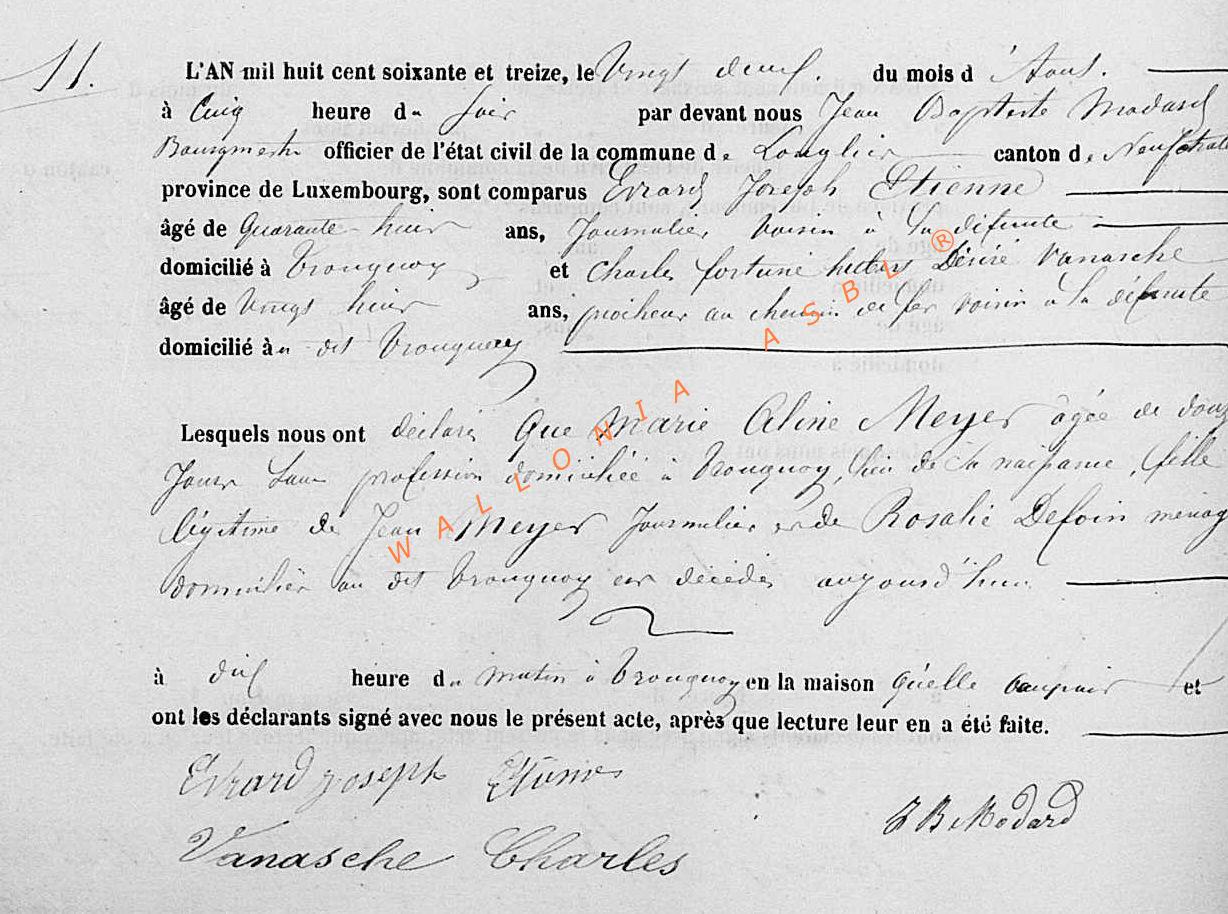 11.
L'AN mil huit cent soixante et treize, le Vingt deux. du mois d'Aout.
à Cinq heure du Soir par devant nous Jean Baptiste Modard
Bourgmestre officier de l'état civil de la commune de Longlier canton de Neufchateau
province de Luxembourg, sont comparus Evrard Joseph Etienne
âgé de Quarante-huit ans, Journalier Voisin à la défunte
domicilié à Tronquoy et Charles fortuné Désiré Vanasche
âgé de Vingt huit ans, piocheur au chemin de fer voisin à la défunte
domicilié au dit Tronquoy
Lesquels nous ont déclaré Que Marie Celine Meyer âgée de douze
Jours Sans profession domiciliée à Tronquoy, lieu de sa naissance, fille
légitime de Jean Meyer Journalier et de Rosalie Defoin ménag
domiciliés au dit Tronquoy est décédée aujourd'hui
à dix heure du matin à Tronquoy en la maison qu'elle occupait et
ont les déclarants signé avec nous le présent acte, après que lecture leur en a été faite.
Evrard joseph Etienne
J B Modard
Vanasche Charles
WALLONIA ASBL ®